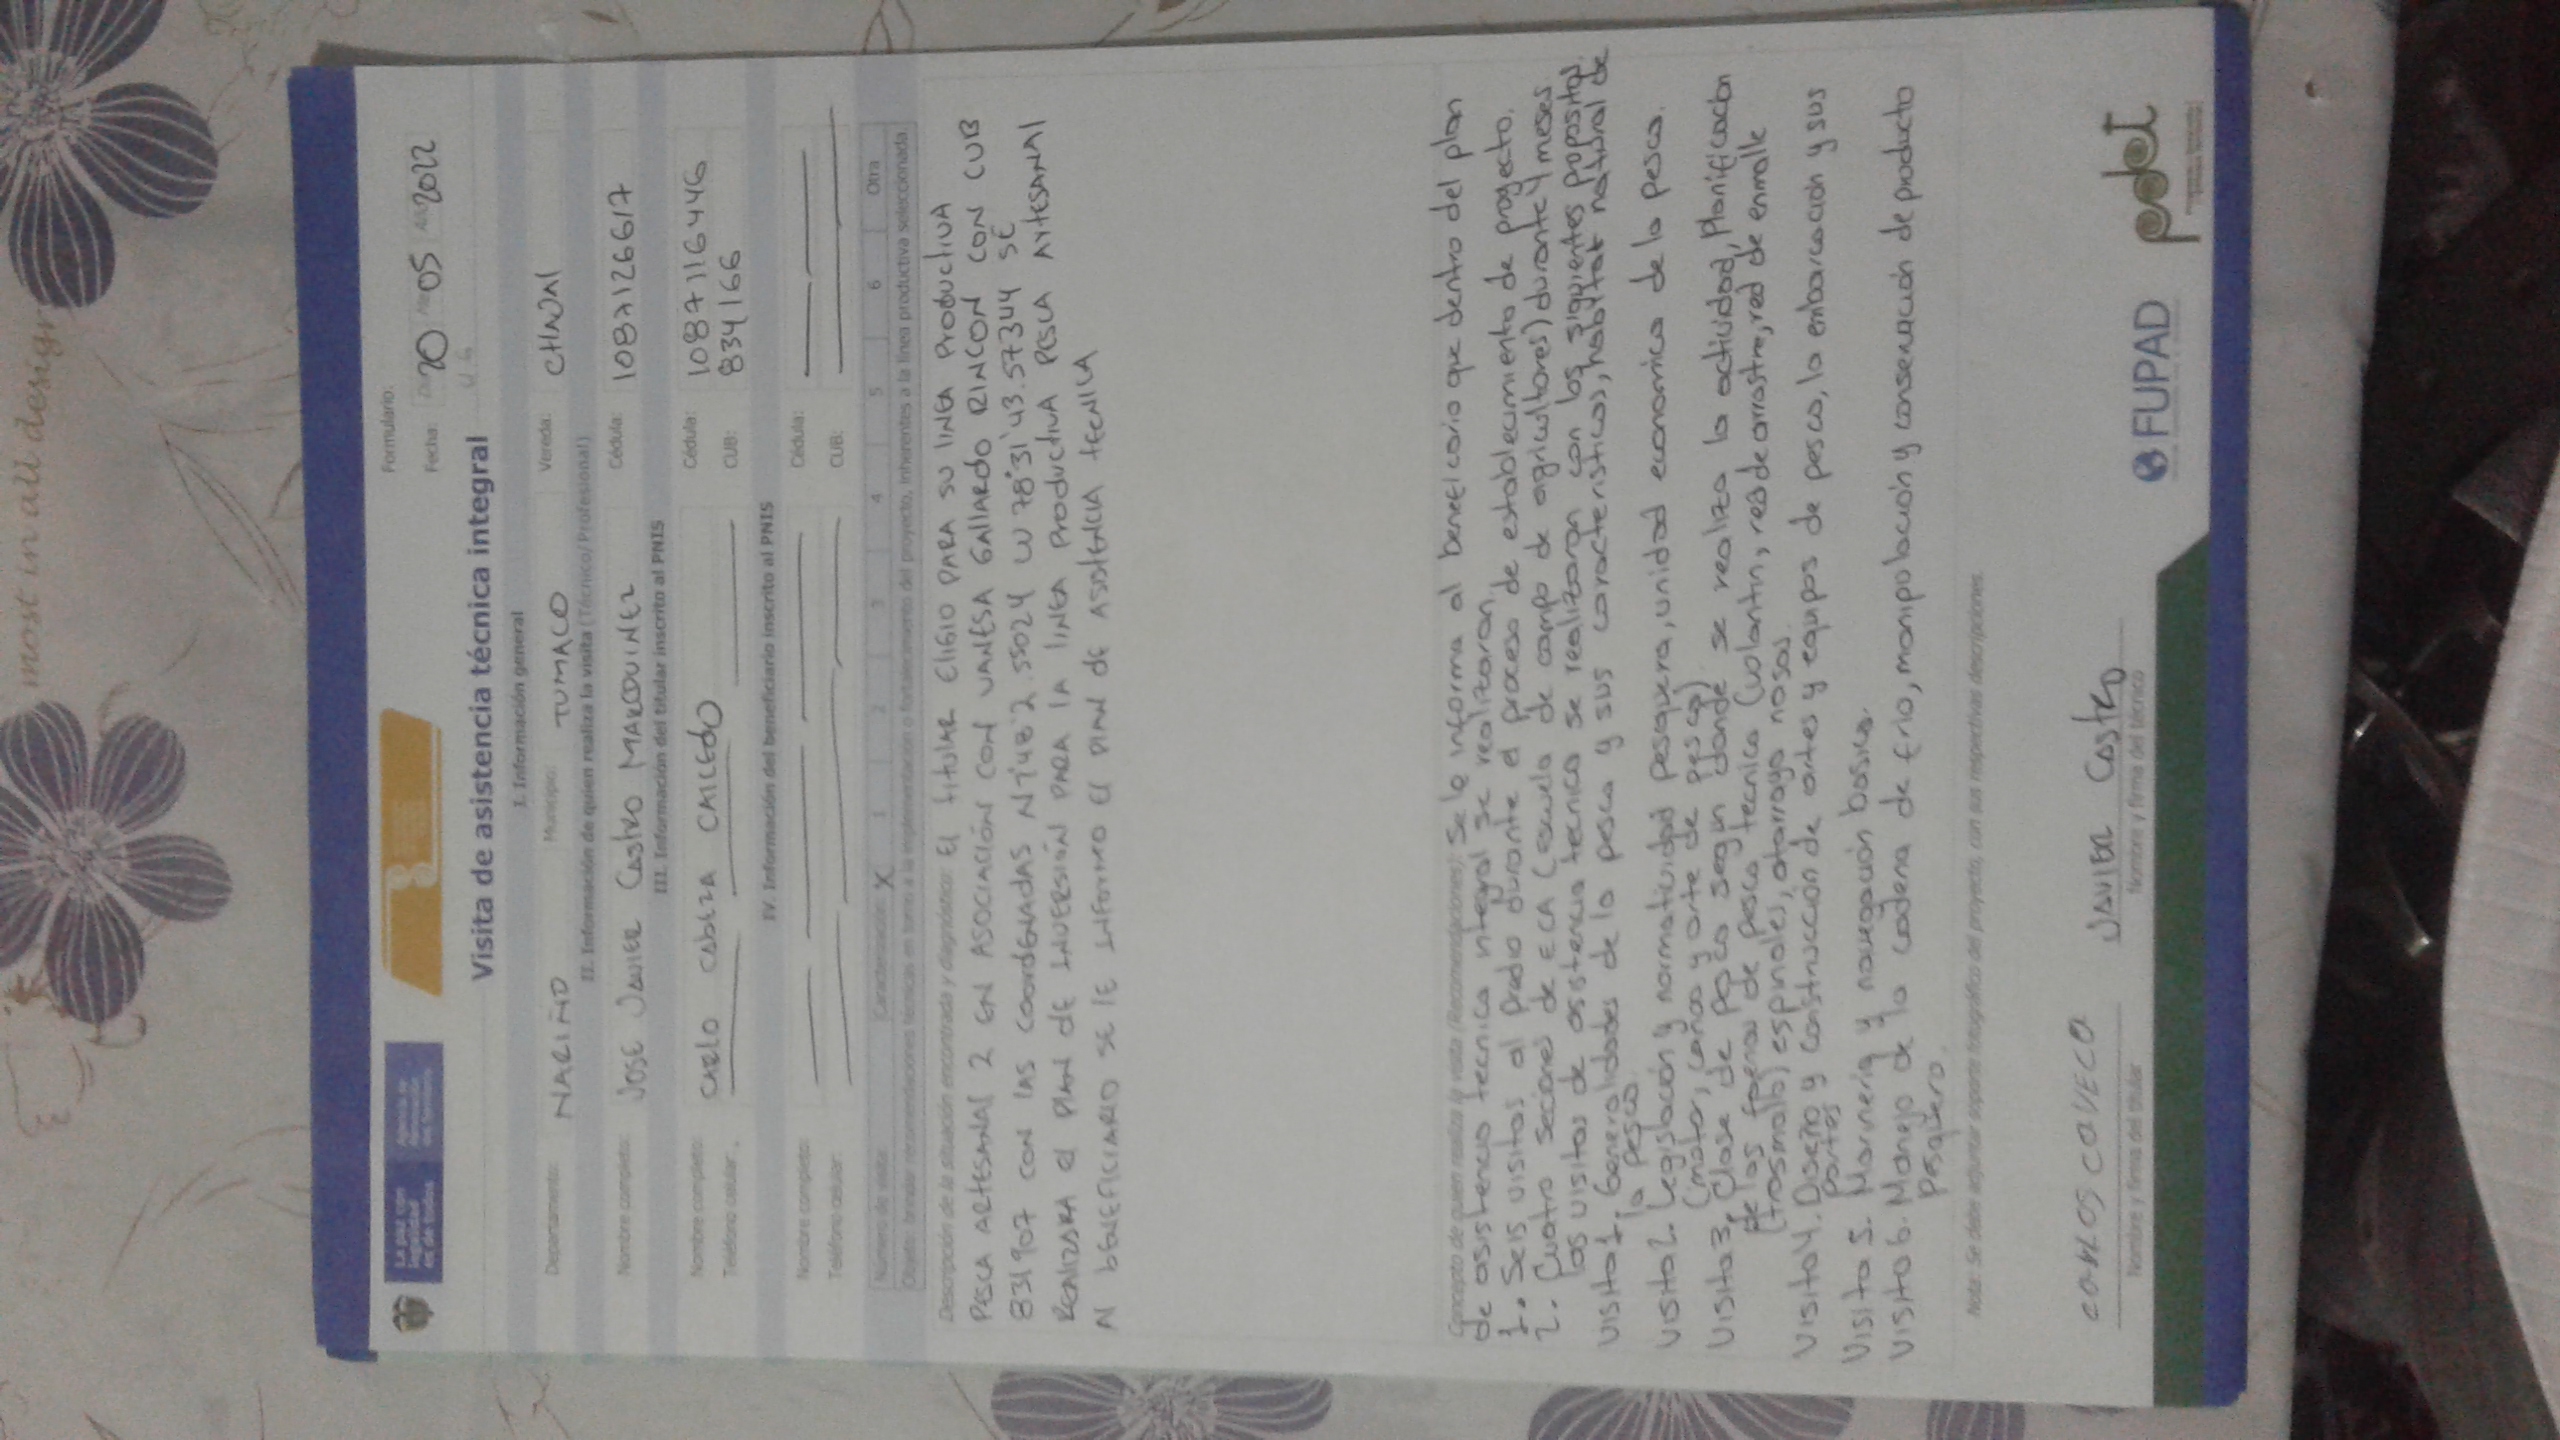 most in all design
La paz con
legalidad
es de todos
Agencia de
Renovación
del Territorio
Formulario:
Fecha: 20 05 2022
Visita de asistencia técnica integral
I. Información general
Departamento: NARIÑO Municipio: TUMACO Vereda: CHAJAL
II. Información de quien realiza la visita (Técnico/Profesional)
Nombre completo: JOSE JAVIER CASTRO MARQUINEZ Cédula: 1087126617
III. Información del titular inscrito al PNIS
Nombre completo: CARLO CABEZA CAICEDO Cédula: 1087116446
Teléfono celular: CUB: 834166
IV. Información del beneficiario inscrito al PNIS
Nombre completo: Cédula:
Teléfono celular: CUB:
Número de visita: Caracterización: X 1 2 3 4 5 6 Otra
Objeto: brindar recomendaciones técnicas en torno a la implementación o fortalecimiento del proyecto, inherentes a la línea productiva seleccionada.
Descripción de la situación encontrada y diagnóstico: El titular Eligio PARA SU linea productiva
PESCA ARTESANAL 2 EN ASOCIACIÓN CON VANESA GALLARDO RINCON CON CUB
831907 CON LAS COORDENADAS N1°48'2.5502Y W 78°31'43.5734Y SE
REALIZARA el PLAN DE INVERSIÓN PARA LA LINEA PRODUCTIVA PESCA ARTESANAL
Al BENEFICIARIO SE LE INFORMO El PLAN DE ASISTENCIA TECNICA
Concepto de quien realiza la visita (Recomendaciones): Se le informa al beneficario que dentro del plan
de asistencia tecnica integral se realizaran.
1. Seis visitas al predio durante el proceso de establecimiento de progecto.
2. Cuatro secciones de ECA (escuela de campo de agricultores) durante 4 meses
las visitas de asistencia tecnica se realizaran con los siguientes popositos.
Visita 1, Generalidades de la pesca y sus caracteristicas, habittat natural de
la pesca.
Visita 2. Legislación y normatividad pesquera, unidad economica de la pesca.
(motor, canoa y arte de pesca)
Visita 3, Clase de pesca según donde se realiza la actividad, Planificación
de las faenas de pesca, tecnica (volantin, red de arrastre, red de enmalle
(trasmallo) espineles, atarraya nasas.
Visita 4. Diseño y construcción de artes y equipos de pesca, la embarcación y sus
partes
Visita 5. Marineria y navegación basica.
Visita 6. Manejo de la cadena de frio, manipolación y conservación de producto
Pesquero.
Nota: Se debe adjuntar soporte fotográfico del proyecto, con sus respectivas descripciones.
CARLOS CAVECA JAVIER Castro
Nombre y firma del titular Nombre y firma del técnico
FUPAD
pedet